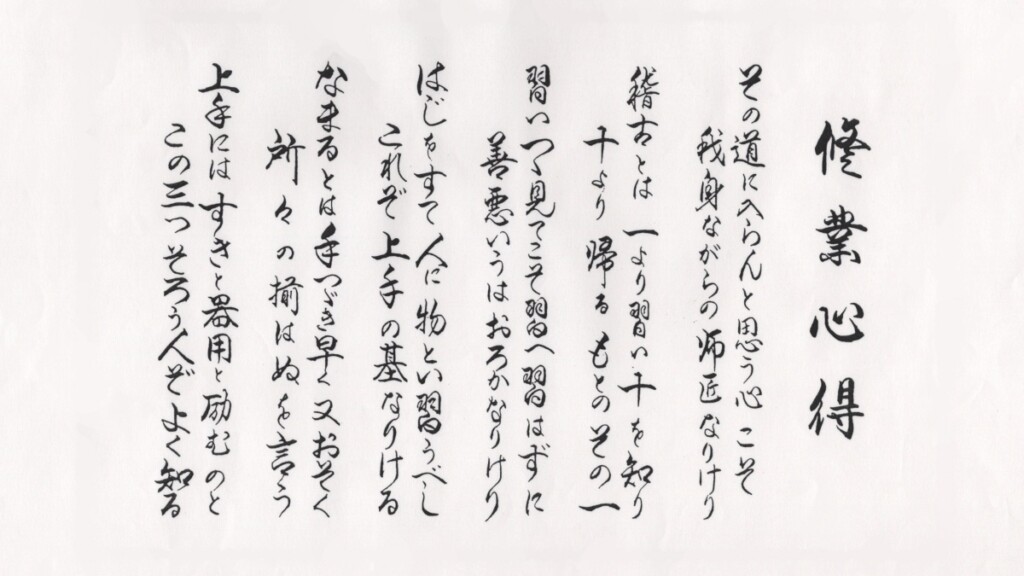 修業心得
その道に入らんと思う心こそ
我身ながらの師匠なりけり
稽古とは一より習い十を知り
十より帰るもとのその一
習いつゝ見てこそ習へ習はずに
善悪いうはおろかなりけり
はじをすて人に物とい習うべし
これぞ上手の基なりける
なまるとは手つづき早く又おそく
所々の揃はぬを言う
上手にはすきと器用と励むのと
この三つそろう人ぞよく知る